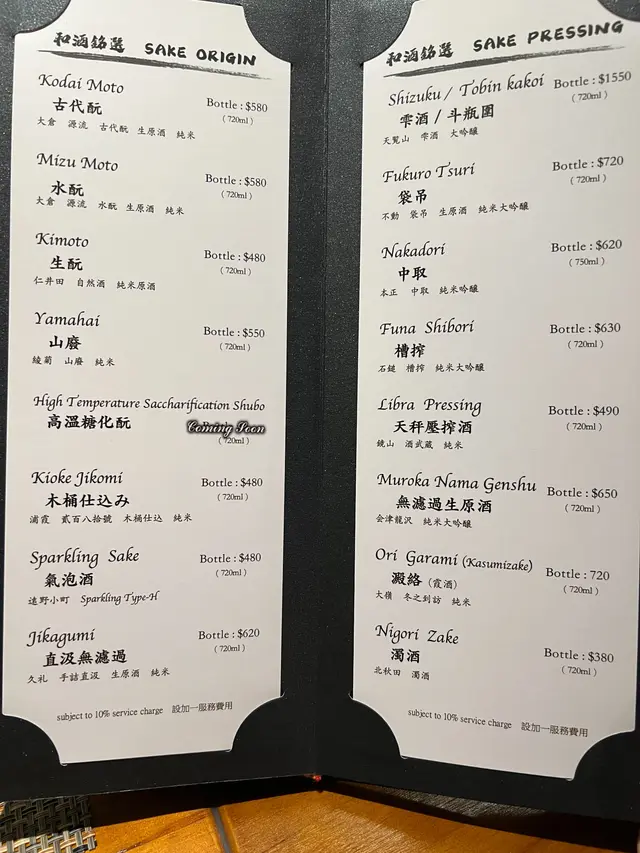 和酒銘選 SAKE ORIGIN
Kodai Moto
古代酛
Bottle : $580
(720ml)
大倉 源流 古代酛 生原酒 純米
Mizu Moto
水酛
Bottle : $580
(720ml)
大倉 源流 水酛 生原酒 純米
Kimoto
生酛
Bottle : $480
(720ml)
仁井田 自然酒 純米原酒
Yamahai
山廢
Bottle : $550
(720ml)
綾菊 山廢 純米
High Temperature Saccharification Shubo
高溫糖化酛
Coming Soon
(720ml)
Kioke Jikomi
木桶仕込み
Bottle : $480
(720ml)
浦霞 貳百八拾號 木桶仕込 純米
Sparkling Sake
氣泡酒
Bottle : $480
(720ml)
遠野小町 Sparkling Type-H
Jikagumi
直汲無濾過
Bottle : $620
(720ml)
久礼 手詰直汲 生原酒 純米
subject to 10% service charge 設加一服務費用
和酒銘選 SAKE PRESSING
Shizuku / Tobin kakoi
雫酒 / 斗瓶囲
Bottle : $1550
(720ml)
天覧山 雫酒 大吟醸
Fukuro Tsuri
袋吊
Bottle : $720
(720ml)
不動 袋吊 生原酒 純米大吟醸
Nakadori
中取
Bottle : $620
(750ml)
本正 中取 純米吟醸
Funa Shibori
槽搾
Bottle : $630
(720ml)
石鎚 槽搾 純米大吟醸
Libra Pressing
天秤壓搾酒
Bottle : $490
(720ml)
鏡山 酒武蔵 純米
Muroka Nama Genshu
無濾過生原酒
Bottle : $650
(720ml)
会津龍沢 純米大吟醸
Ori Garami (Kasumizake)
澱絡 (霞酒)
Bottle : 720
(720ml)
大嶺 冬之到訪 純米
Nigori Zake
濁酒
Bottle : $380
(720ml)
北秋田 濁酒
subject to 10% service charge 設加一服務費用